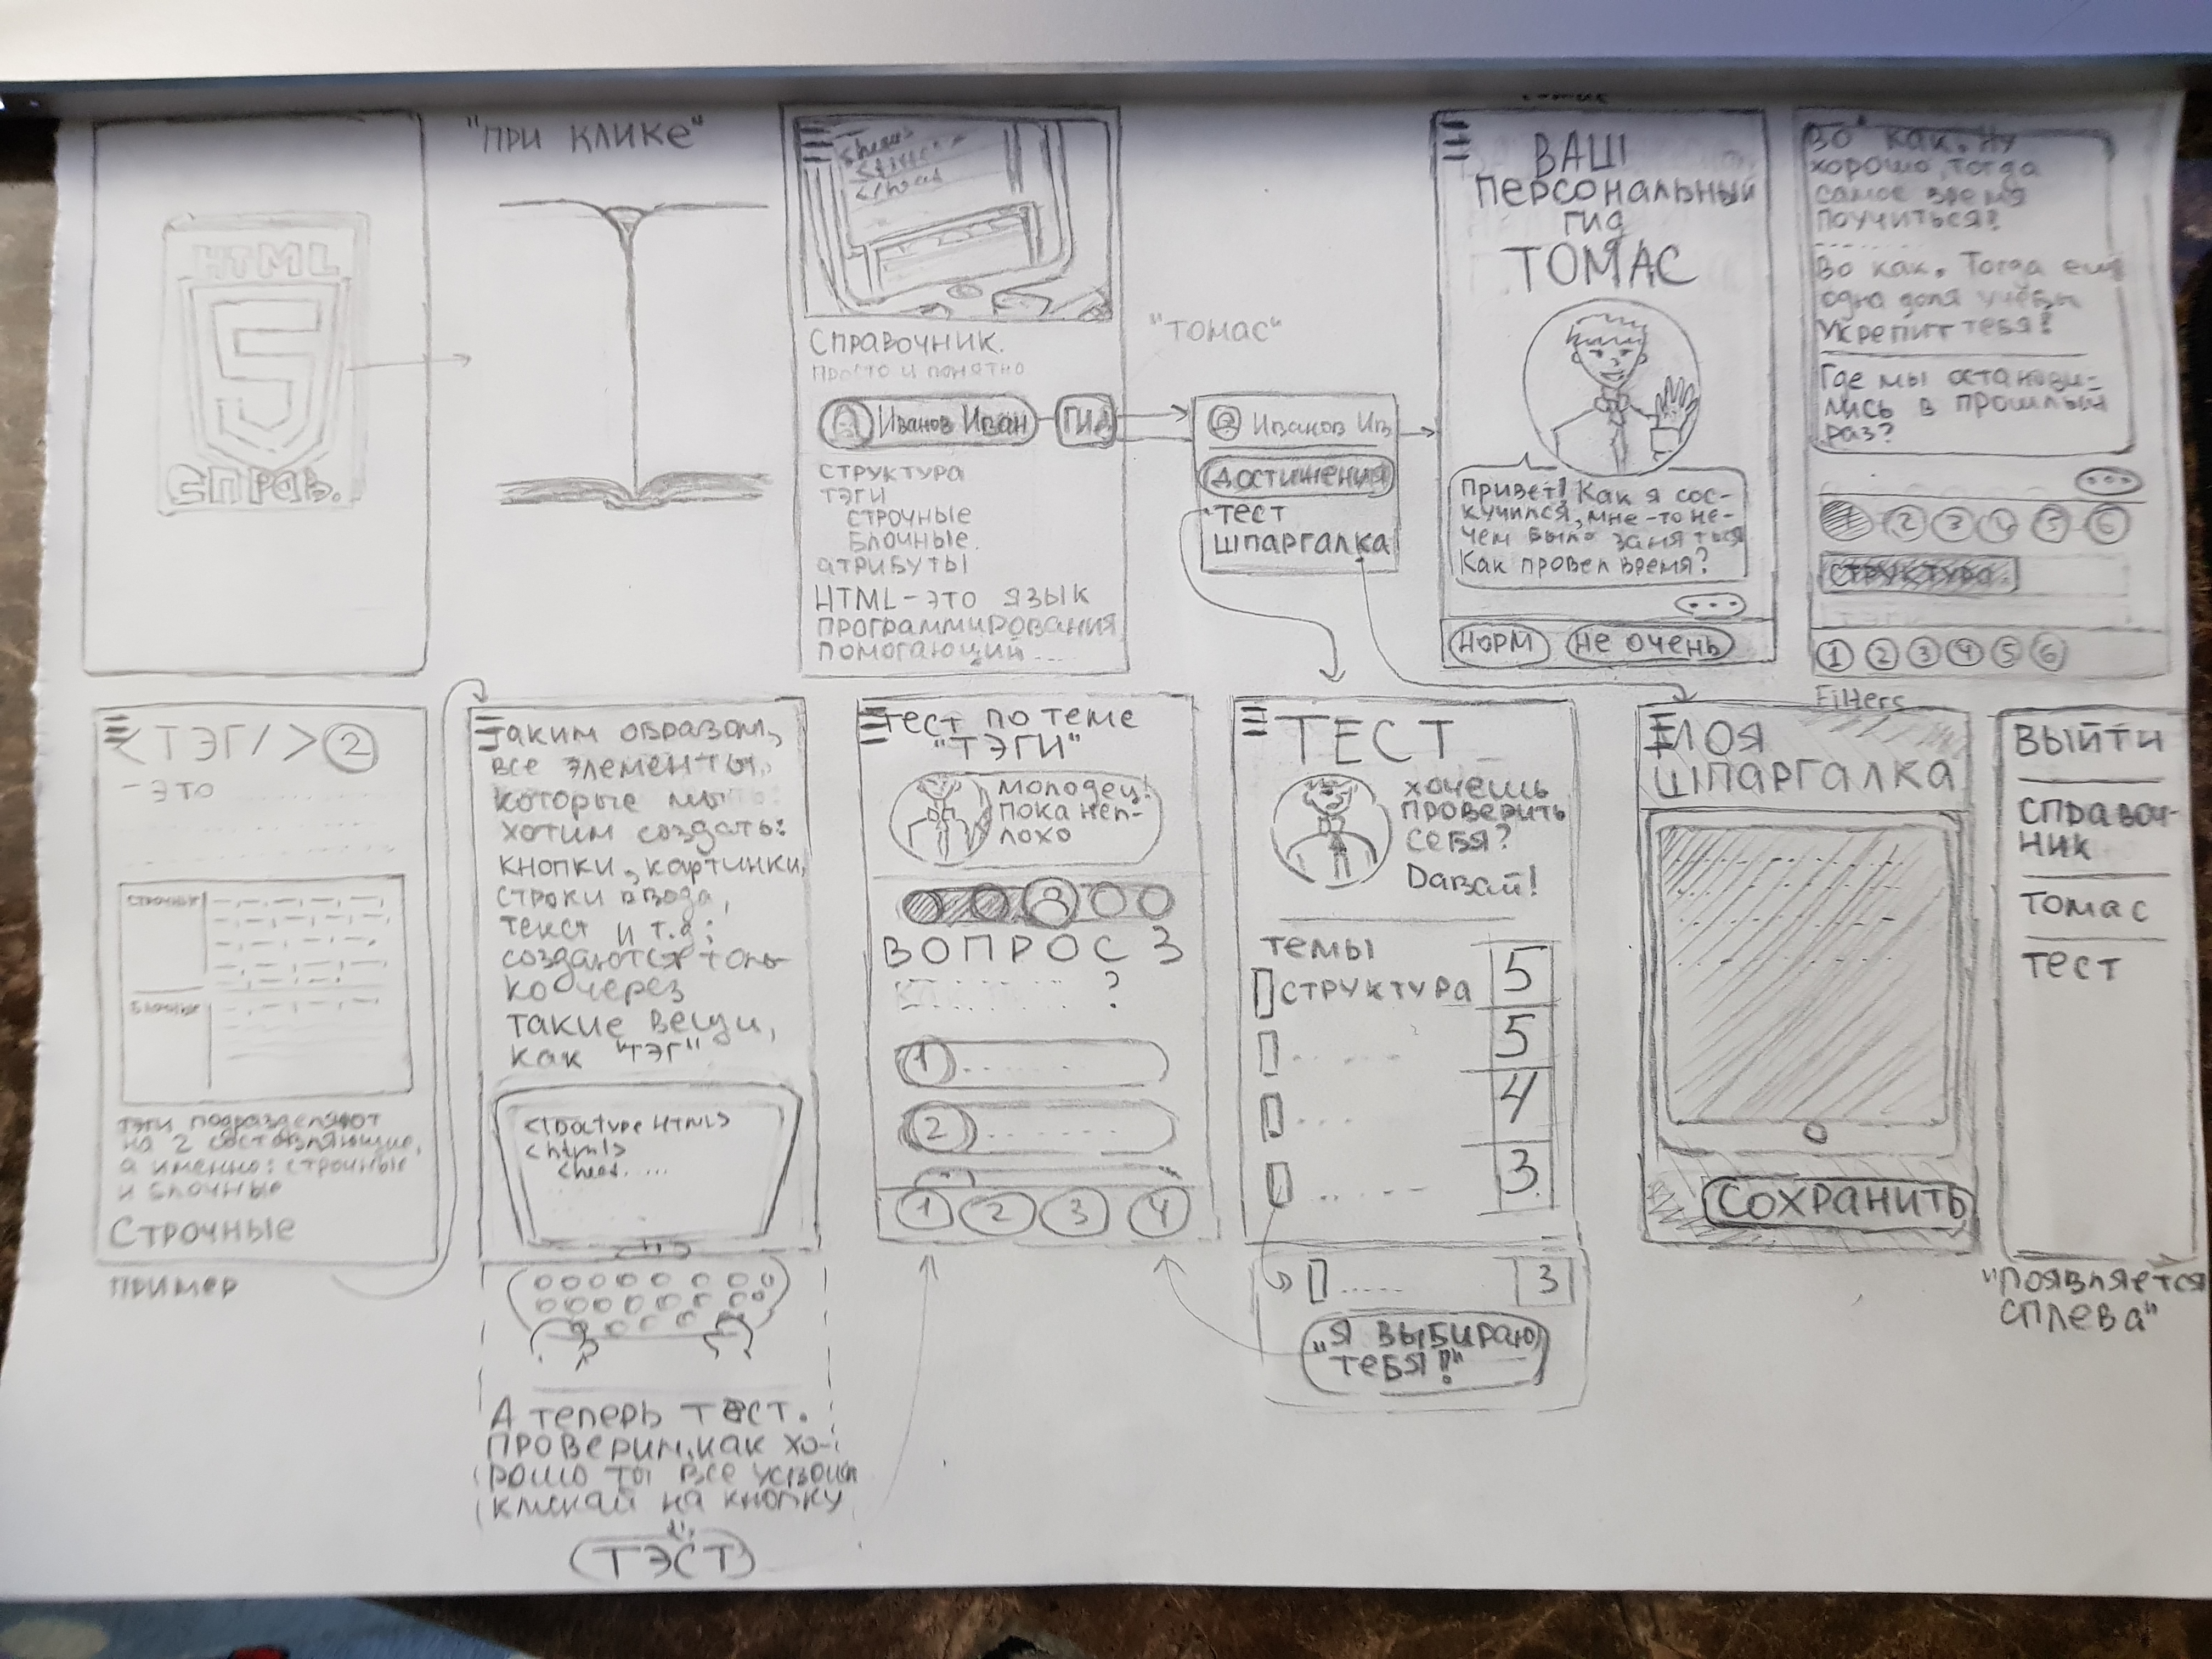 HTML
5
СПРАВ.
"ПРИ КЛИКЕ"
<head>
</head
СПРАВОЧНИК.
Просто и понятно
Иванов Иван
ГИД
СТРУКТУРА
ТЭГИ
СТРОЧНЫЕ
БЛОЧНЫЕ.
АТРИБУТЫ
HTML-ЭТО ЯЗЫК
ПРОГРАММИРОВАНИЯ
ПОМОГАЮЩИЙ....
"ТОМАС"
Иванов Ив
ДОСТИЖЕНИЯ
ТЕСТ
ШПАРГАЛКА
ВАШ
ПЕРСОНАЛЬНЫЙ
ГИД
ТОМАС
Привет! Как я сос-
кучился, мне-то не-
чем было заняться
Как провел время?
...
НОРМ
НЕ ОЧЕНЬ
Во как. Ну
хорошо, тогда
самое время
поучиться?
Во как. Тогда ещё
одна доля учёбы
укрепит тебя!
Где мы останови-
лись в прошлый
раз?
...
2 3 4 5 6
СТРУКТУРА
ТЭГИ
1 2 3 4 5 6
Filters
<ТЭГ/> 2
-ЭТО
СТРОЧНЫЕ
БЛОЧНЫЕ
Тэги подразделяют
на 2 составляющие,
а именно: строчные
и блочные
Строчные
ПРИМЕР
Таким образом,
все элементы,
которые мы
хотим создать:
кнопки, картинки,
строки ввода,
текст и т.д;
создаются толь-
ко через
такие вещи,
как "ТЭГ"
<!Doctype HTML>
<html>
<head. ...
А теперь тест.
Проверим, как хо-
рошо ты все усвоил
кликай на кнопку
ТЭСТ
Тест по теме
"ТЭГИ"
Молодец!
Пока неп-
лохо
3
ВОПРОС 3
?
1
2
1 2 3 4
ТЕСТ
Хочешь
проверить
себя?
Давай!
ТЕМЫ
СТРУКТУРА 5
5
4
3
3
"Я ВЫБИРАЮ
ТЕБЯ!"
МОЯ
ШПАРГАЛКА
СОХРАНИТЬ
ВЫЙТИ
СПРАВОЧ-
НИК
ТОМАС
ТЕСТ
"ПОЯВЛЯЕТСЯ
СПЛЕВА"